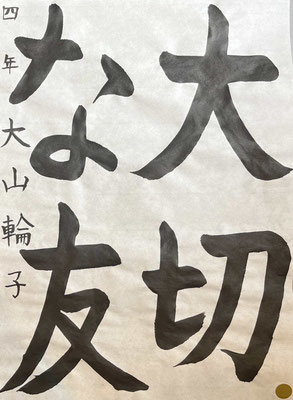 大切
な友
四年大山輪子